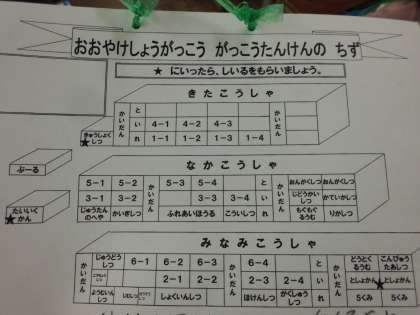 おおやけしょうがっこう がっこうたんけんの ちず
★ にいったら、しいるをもらいましょう。
きたこうしゃ
かいだん といれ かいだん
4-1 4-2 4-3
1-1 1-2 1-3 1-4
きゅうしょくしつ
★
ぷーる
なかこうしゃ
5-1 5-2 かいだん 5-3 5-4 といれ かいだん おんがくしつ おんがくしつ
3-1 3-2 3-3 3-4 じどうかいしつ かていかしつ
じゅうたんのへや かいぎしつ ふれあいほうる こういしつ もぐもぐるうむ りかしつ
たいいくかん
★
みなみこうしゃ
かいだん じゅうどうしつ 6-1 6-2 かいだん 6-4 といれ かいだん どうとくるうむ こんぴゅうたあしつ
2-1 2-2 2-3 2-4 としょかん ★ としょかん
しょくいんしつ ほけんしつ がくしゅうしつ 5くみ 5くみ